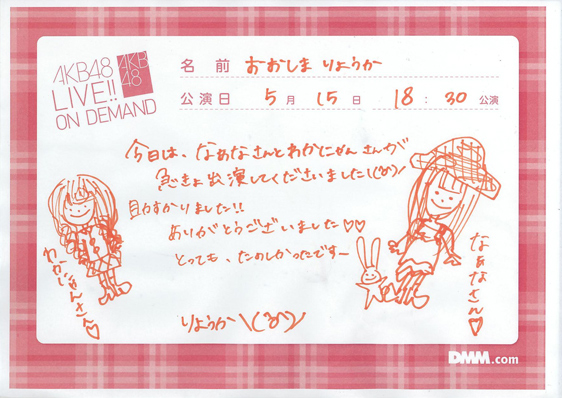 AKB48
LIVE!!
ON DEMAND
AKB
48
名前 おおしまりょうか
公演日 5月15日 18:30公演
今日は、なぁなさんとわかにゃんさんが
急きょ出演してくださいました\(^o^)/
助かりました!!
ありがとうございました♡♡
とっても、たのしかったです〜
わかにゃんさん♡
なぁなさん♡
りょうか\(^o^)/
DMM.com